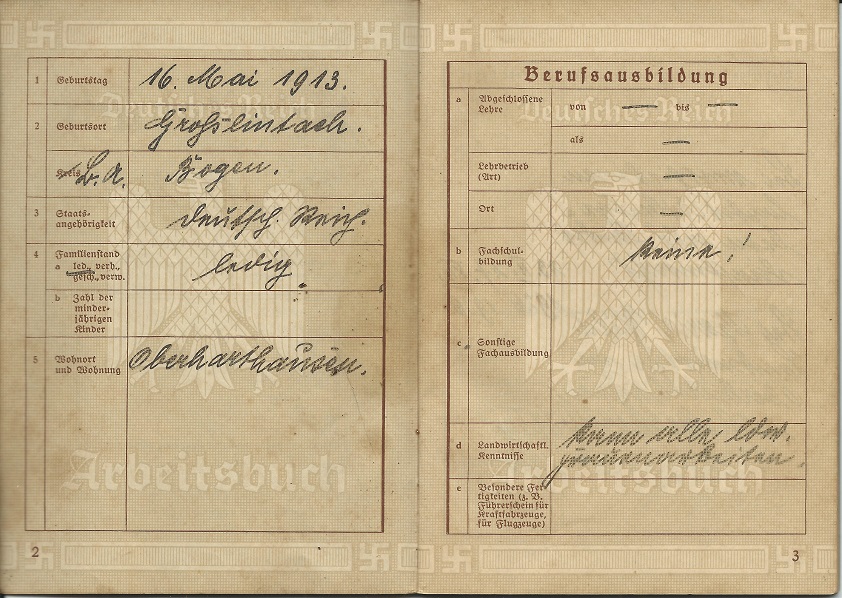 1 Geburtstag 16. Mai 1913.
2 Geburtsort Großlintach.
Kreis B. A. Bogen.
3 Staats-
angehörigkeit Deutsch. Reich.
4 Familienstand
a led., verh.,
gesch., verw. ledig
b Zahl der
minder-
jährigen
Kinder
5 Wohnort
und Wohnung Oberharthausen.
Deutsches Reich
Arbeitsbuch
2
Berufsausbildung
a Abgeschlossene
Lehre von — bis —
als —
Lehrbetrieb
(Art) —
Ort —
b Fachschul-
bildung keine!
c Sonstige
Fachausbildung
d Landwirtschaftl.
Kenntnisse kann alle ldw.
Frauenarbeiten.
e Besondere Fer-
tigkeiten (z. B.
Führerschein für
Kraftfahrzeuge,
für Flugzeuge)
Deutsches Reich
Arbeitsbuch
3